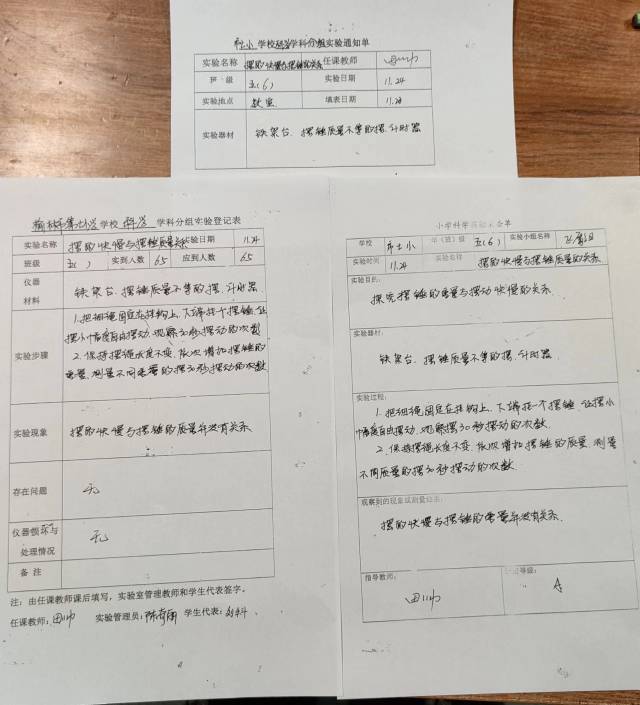 市七小学校科学学科分组实验通知单
实验名称 摆的快慢与摆锤的关系 任课教师 田帅
班 级 五(6) 实验日期 11.24
实验地点 教室 填表日期 11.23
实验器材 铁架台、摆锤质量不等的摆、计时器
学校 科学 学科分组实验登记表
实验名称 摆的快慢与摆锤质量关系 实验日期 11.24
班级 五( ) 实到人数 65 应到人数 65
仪器材料 铁架台、摆锤质量不等的摆、计时器
实验步骤
1.把细绳固定在挂钩上,下端挂一个摆锤,让
摆小幅度自由摆动,观察30秒摆动的次数
2.保持摆绳长度不变,依次增加摆锤的
重量,测量不同重量的摆30秒摆动的次数
实验现象 摆的快慢与摆锤的质量并没有关系
存在问题 无
仪器损坏与处理情况 无
备 注
注:由任课教师课后填写,实验室管理教师和学生代表签字。
任课教师:田帅 实验管理员: 学生代表:
小学科学 单
学校 市七小 年(班)级 五(6) 实验小组名称
实验时间 11.24 实验名称 摆的快慢与摆锤质量的关系
实验目的:
探究摆锤的重量与摆动快慢的关系.
实验器材:
铁架台、摆锤质量不等的摆、计时器
实验过程:
1.把细绳固定在挂钩上、下端挂一个摆锤,让摆小
幅度自由摆动,观察摆30秒摆动的次数.
2.保持摆绳长度不变,依次增加摆锤的质量,测量
不同质量的摆30秒摆动的次数.
观察到的现象或测量结果:
摆的快慢与摆锤的重量并没有关系.
指导教师: 田帅 等级: A